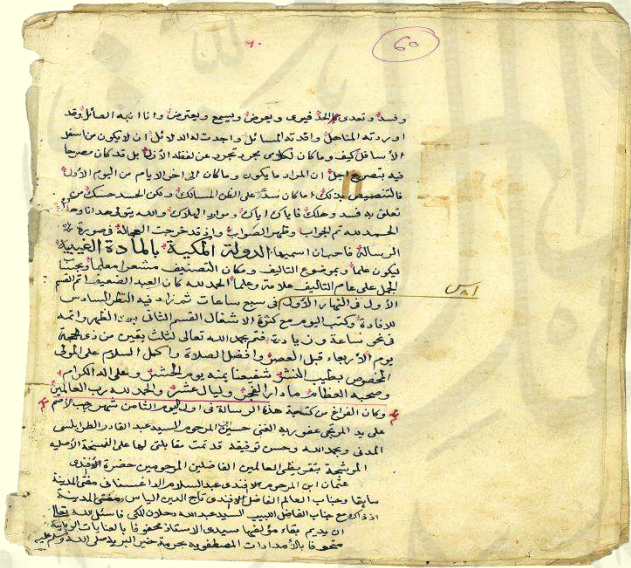 ٦٠
60
وفسد وتعدى الحد فيرى ويعرض ويسمع ويعترض وانا انبه السائل وقد
اوردته المناهل وافدته المسائل واجدت له الدلائل ان لا يكون من اسفل
الاسافل كيف وما كان كلامى مجرد تجرد عن لفظه الأزل بل قد كان مصرحا
فيه بتصريح اجل ان المراد ما يكون وما كان الى اخر الايام من اليوم الاول
فالتنصيص بذلك اما كان سد على الظن المسالك ولكن الحسد حسك من
تعلق به فسد وهلك فاياك اياك وموارد الهلاك والله يتولى هدانا وهداك
الحمد لله تم الجواب وظهر الصواب واذ قد خرجت العجالة فى صورة
الرسالة فاحب ان اسميها الدولة المكية بالمادة الغيبية
ليكون علما وبموضوع التاليف ومكان التصنيف مشعرا معلما وبحساب
الجمل على عام التاليف علامة وعلما الحمد لله كان العبد الضعيف اتم القسم
الاول فى النهار الاول فى سبع ساعات ثم زاد فيه النظر السادس
للافادة وكتب اليوم مع كثرة الاشغال القسم الثانى بعد الظهر واتمه
فى نحو ساعة وزيادة فتم بحمد الله تعالى لثلث بقين من ذى الحجة
يوم الاربعاء قبل العصر وافضل الصلاة واكمل السلام على المولى
المخصوص بطيب النشر شفيعنا بمنه يوم الحشر وعلى اله الكرام
وصحبه العظام ما دار الفجر وليال عشر والحمد لله رب العالمين
وكان الفراغ من كتبة هذه الرسالة فى اول يوم الثامن شهر رجب الاصم
على يد المرتجى عفو ربه الغنى حسين المرحوم السيد عبد القادر الطرابلسى
المدنى وبحمد الله وحسن توفيقه قد تمت مقابلتى لها على النسخة الاصليه
المرشحة بتقريظى العالمين الفاضلين المرحومين حضرة الأفندى
عثمان ابن المرحوم الافندى عبد السلام الداغستانى مفتى المدينة
سابقا وجناب العالم الفاضل الافندى تاج الدين الياس مفتى المدينة
اذ ذاك مع جناب الفاضل اللبيب السيد عبد الله دحلان المكى فاسئل الله تعالى
ان يديم بقاء مؤلفها سيدى الاستاذ محفوفا بالعنايات الربانية
متحوفا بالأمدادات المصطفويه بحرمة خير البريه صلى الله عليه وسلم